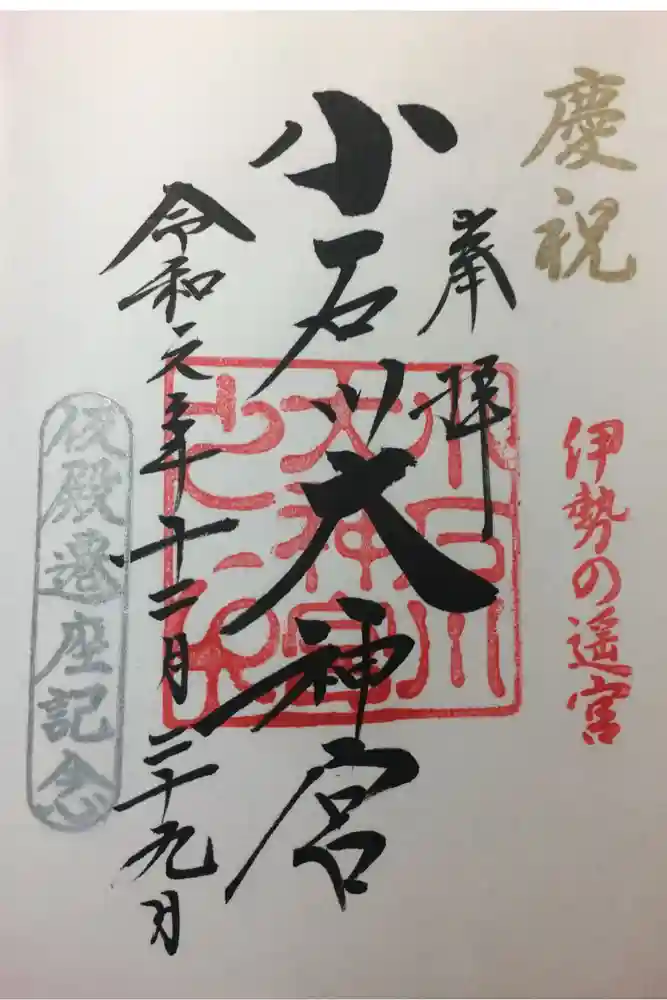 慶祝
伊勢の遥宮
奉拝
小石川大神宮
小石川
大神宮
令和元年十二月二十九日
仮殿遷座記念